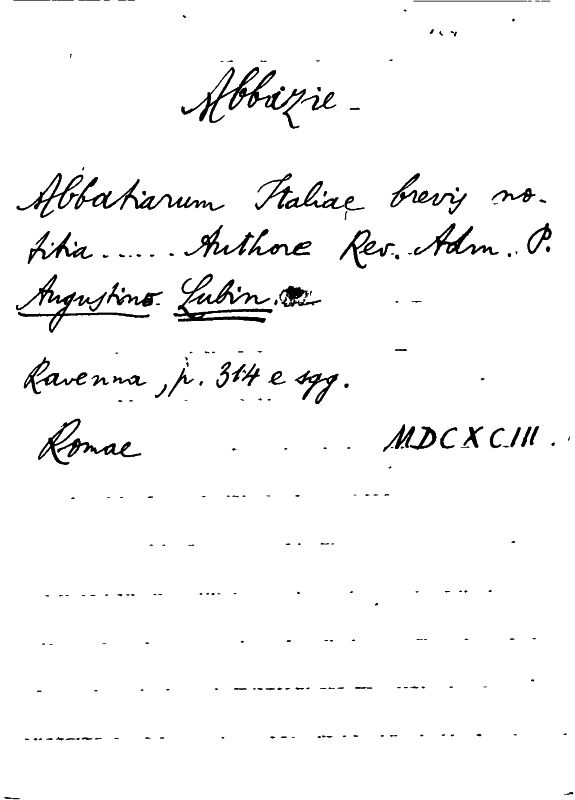 Abbazie -
Abbatiarum Italiae brevis no-
titia ..... Authore Rev. Adm. P.
Augustino Lubin.
Ravenna, p. 314 e sgg.
Romae MDCXCIII.